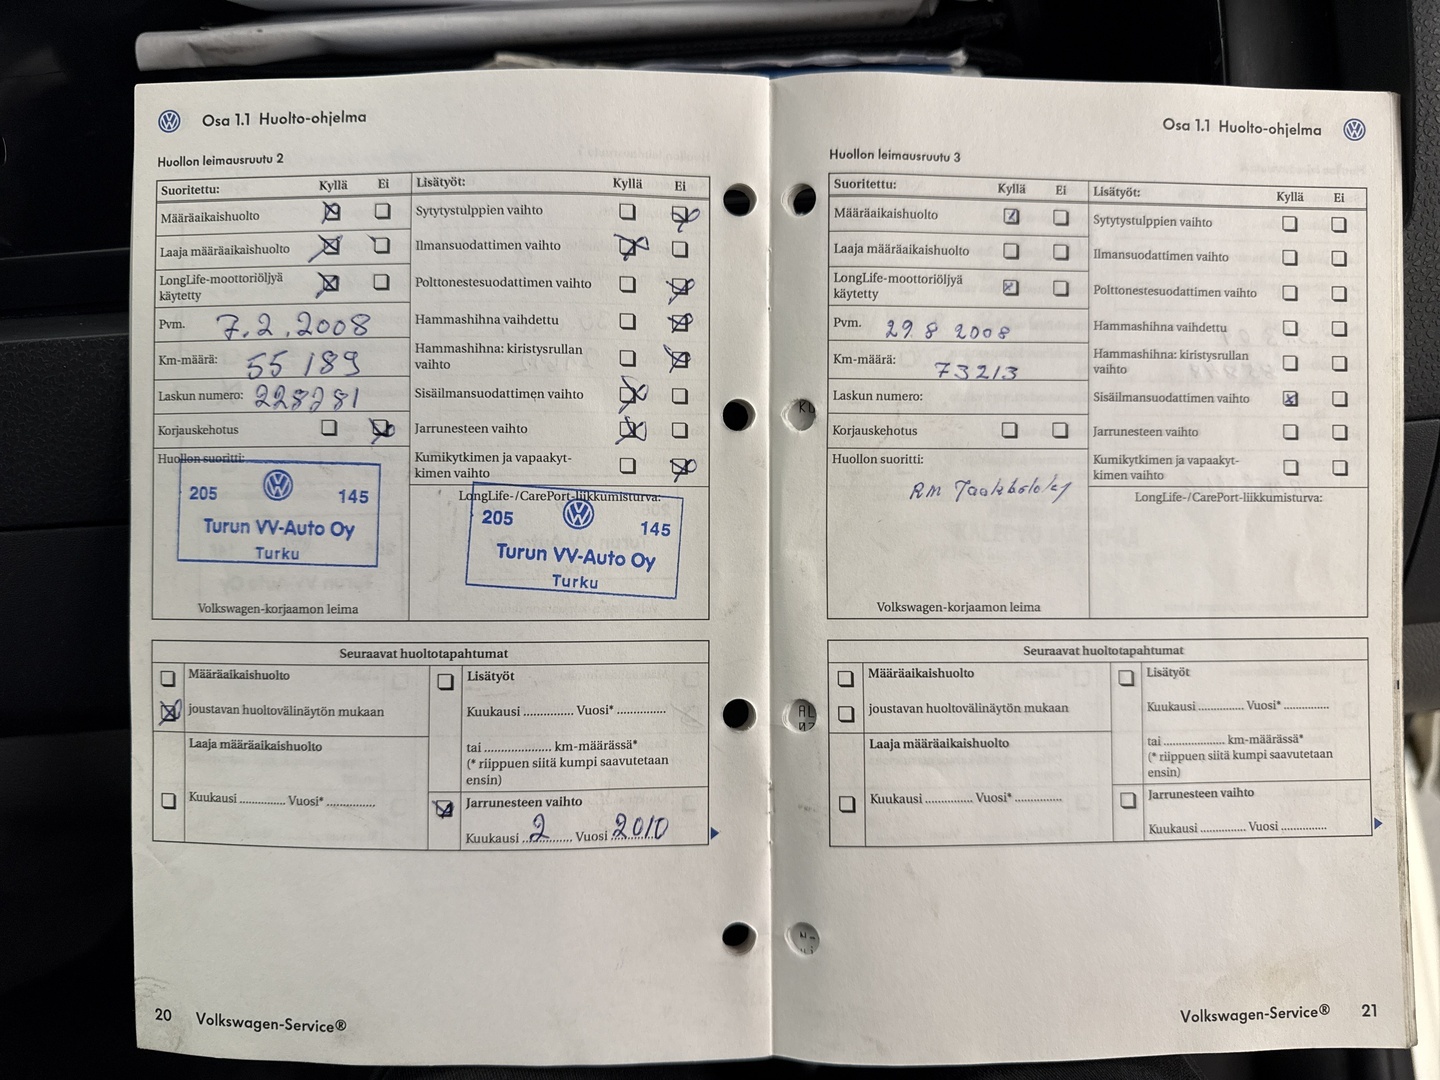 Osa 1.1 Huolto-ohjelma
Huollon leimausruutu 2
Suoritettu: Kyllä Ei
Määräaikaishuolto
Laaja määräaikaishuolto
LongLife-moottoriöljyä
käytetty
Pvm. 7.2.2008
Km-määrä: 55 189
Laskun numero: 228281
Korjauskehotus
Huollon suoritti:
205 145
Turun VV-Auto Oy
Turku
Volkswagen-korjaamon leima
Lisätyöt: Kyllä Ei
Sytytystulppien vaihto
Ilmansuodattimen vaihto
Polttonestesuodattimen vaihto
Hammashihna vaihdettu
Hammashihna: kiristysrullan
vaihto
Sisäilmansuodattimen vaihto
Jarrunesteen vaihto
Kumikytkimen ja vapaakyt-
kimen vaihto
LongLife-/CarePort-liikkumisturva:
205 145
Turun VV-Auto Oy
Turku
Seuraavat huoltotapahtumat
Määräaikaishuolto
joustavan huoltovälinäytön mukaan
Laaja määräaikaishuolto
Kuukausi .............. Vuosi* ...............
Lisätyöt
Kuukausi ............... Vuosi* ...............
tai ..................... km-määrässä*
(* riippuen siitä kumpi saavutetaan
ensin)
Jarrunesteen vaihto
Kuukausi ...2........... Vuosi 2010
20 Volkswagen-Service®
Osa 1.1 Huolto-ohjelma
Huollon leimausruutu 3
Suoritettu: Kyllä Ei
Määräaikaishuolto
Laaja määräaikaishuolto
LongLife-moottoriöljyä
käytetty
Pvm. 29 8 2008
Km-määrä: 73213
Laskun numero:
Korjauskehotus
Huollon suoritti:
RM
Volkswagen-korjaamon leima
Lisätyöt: Kyllä Ei
Sytytystulppien vaihto
Ilmansuodattimen vaihto
Polttonestesuodattimen vaihto
Hammashihna vaihdettu
Hammashihna: kiristysrullan
vaihto
Sisäilmansuodattimen vaihto
Jarrunesteen vaihto
Kumikytkimen ja vapaakyt-
kimen vaihto
LongLife-/CarePort-liikkumisturva:
Seuraavat huoltotapahtumat
Määräaikaishuolto
joustavan huoltovälinäytön mukaan
Laaja määräaikaishuolto
Kuukausi ............... Vuosi* ...............
Lisätyöt
Kuukausi .............. Vuosi* ...............
tai .................... km-määrässä*
(* riippuen siitä kumpi saavutetaan
ensin)
Jarrunesteen vaihto
Kuukausi ............... Vuosi ...............
Volkswagen-Service® 21